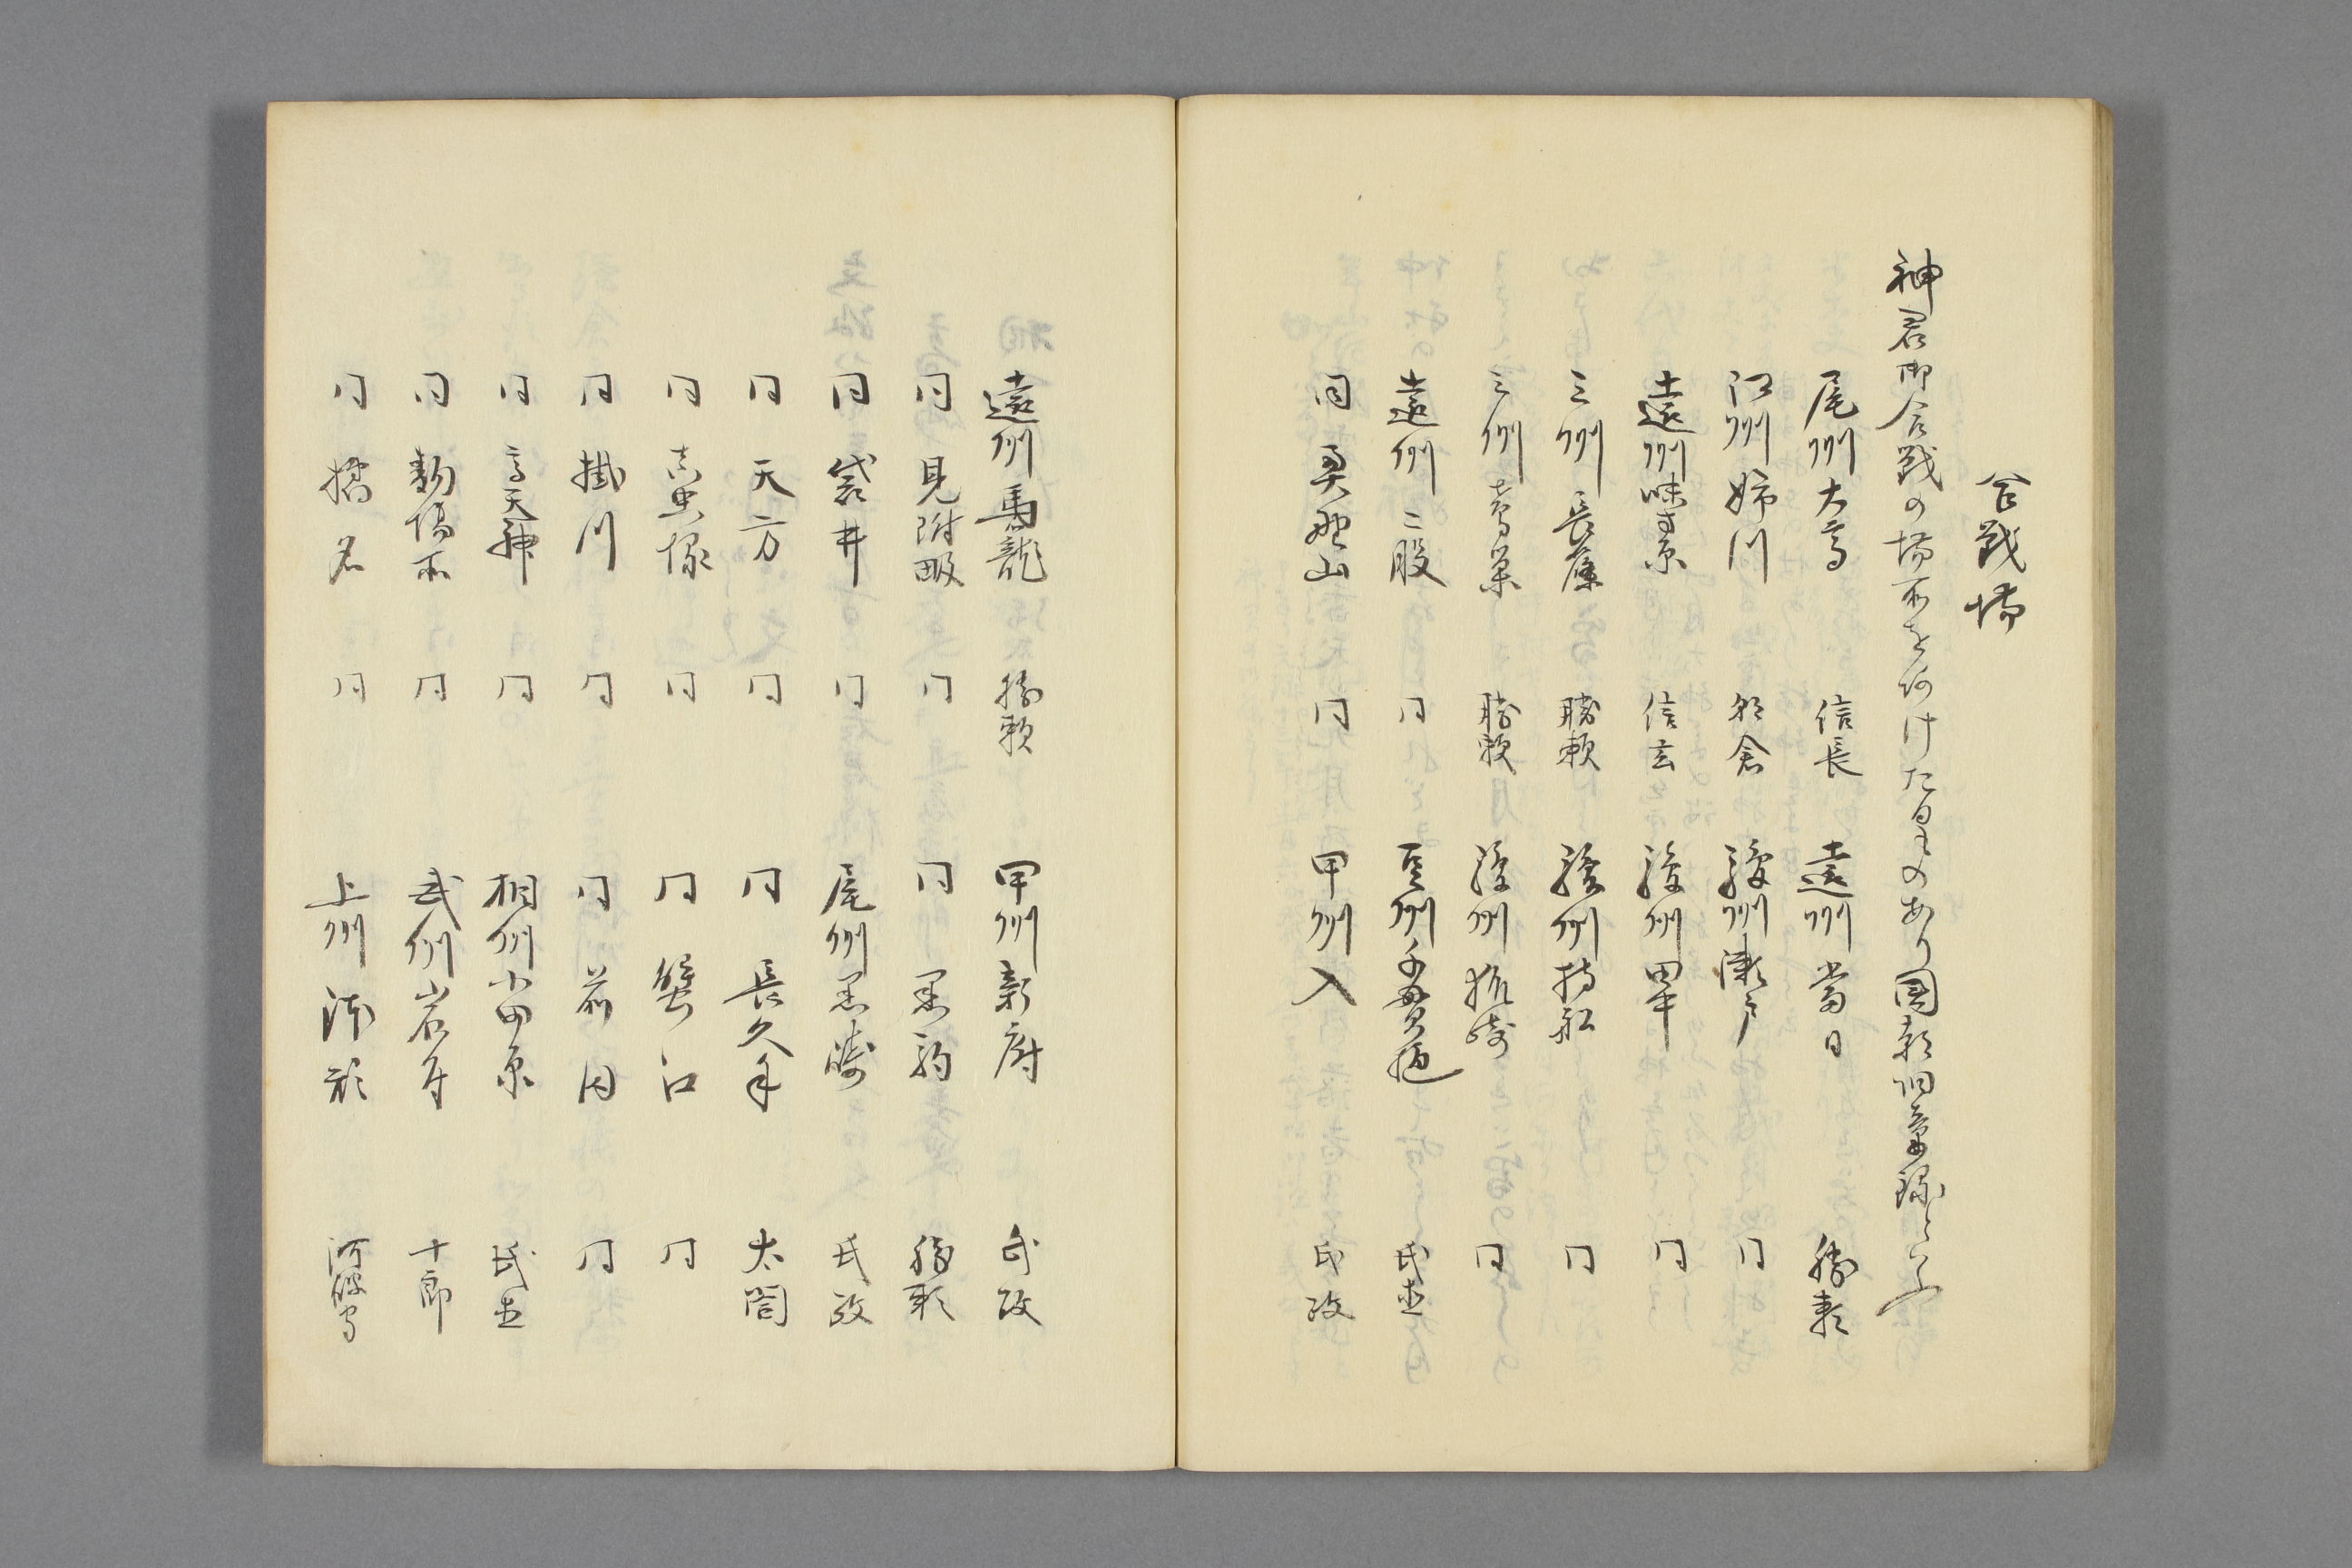 合戦場
神君御合戦の場所をかけたるものあり国朝旧章録といふ
尾州大高 信長 遠州當目 勝頼
江州姉川 朝倉 駿州瀬戸 同
遠州味方原 信玄 駿州田中 同
三州長篠 勝頼 駿州持舩 同
三州鳶巣 勝頼 駿州 同
遠州二股 同 豆州 氏直
同 野山 同 甲州入 氏政
遠州馬籠 勝頼 甲州新府 氏政
同見附畷 同 同 黒駒 勝頼
同袋井 同 尾州 氏政
同天方 同 同 長久手 太閤
同 同 同 蟹江 同
同掛川 同 同 前田 同
同高天神 同 相州小田原 氏直
同 同 武州岩付 十郎
同 名 同 上州 阿波守